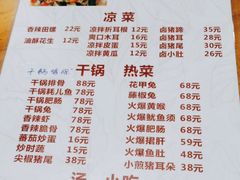 凉菜
香辣田螺 22元
凉拌折耳根 12元
卤猪蹄 35元
油酥花生 12元
爽口木耳 18元
卤猪尾 30元
凉拌皮蛋 15元
卤猪耳 28元
凉拌黄瓜 12元
卤小肚 26元
干锅 热菜
干锅排骨 88元
花甲兔 88元
干锅耗儿鱼 78元
藤椒兔 68元
干锅肥肠 78元
火爆黄喉 68元
干锅兔 78元
火爆鱿鱼须 68元
香辣虾 78元
火爆肥肠 58元
香辣脆骨 78元
火爆郡肝 59元
蕃茄炒蛋 16元
火爆鱼肚 58元
炒时蔬 15元
小煎猪耳朵 38元
尖椒猪尾 38元
汤 小吃